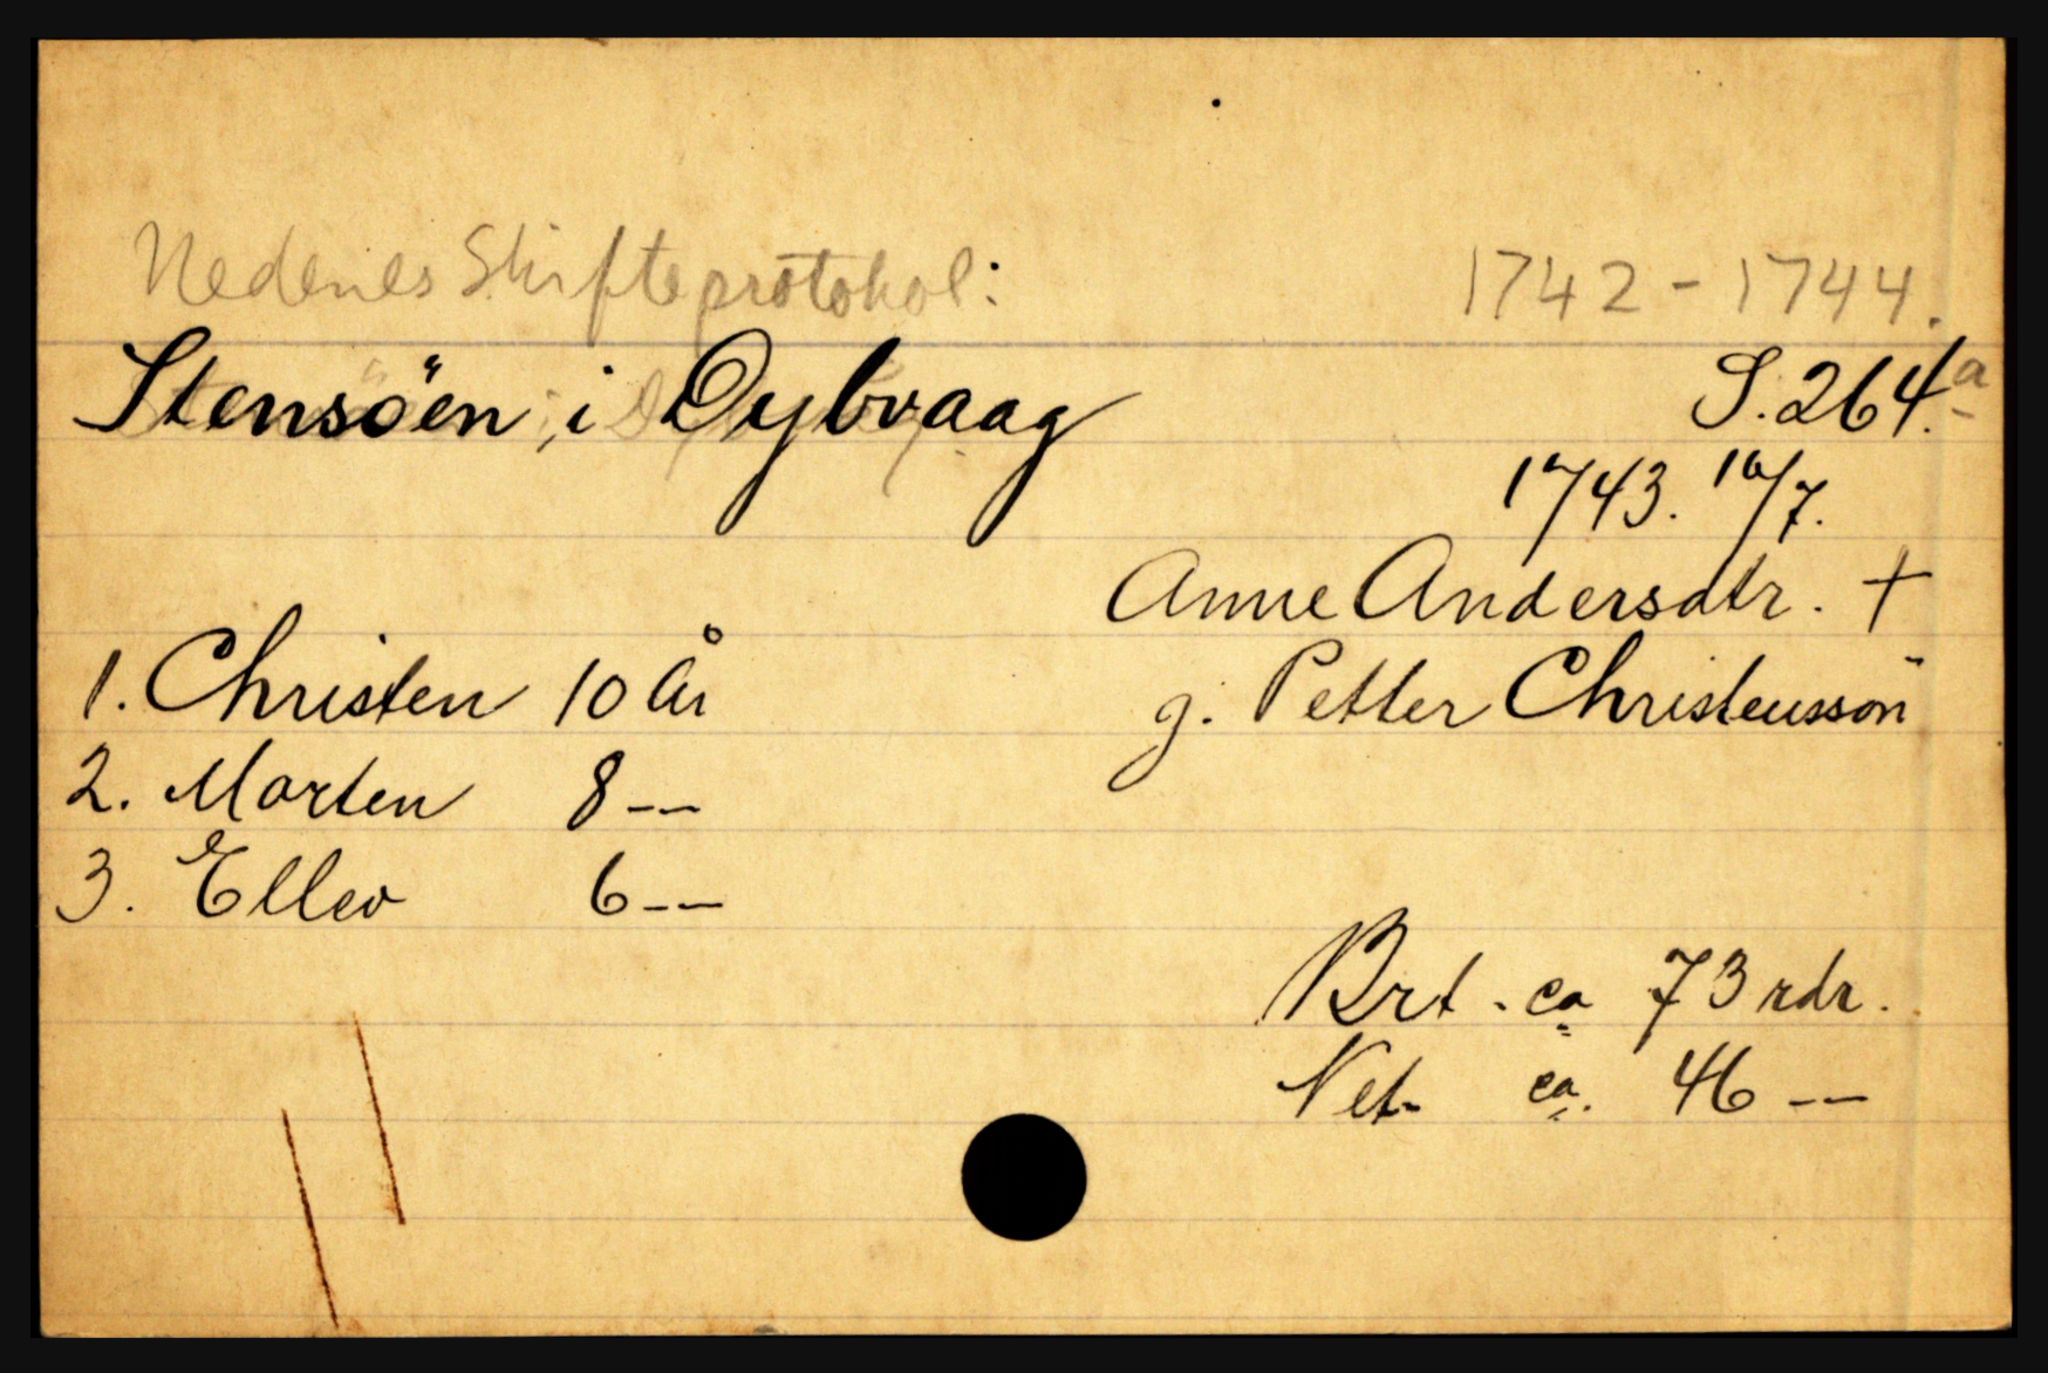 Nedenes Skifteprotokol: 1742-1744.
Stensöen, i Dybvaag S. 264.a
1743. 16/7.
Anne Andersdtr. +
1. Christen 10 år
g. Petter Christensson
2. Morten 8 --
3. Ellev 6 --
Brt. ca 73 rdr.
Net. ca. 46 --